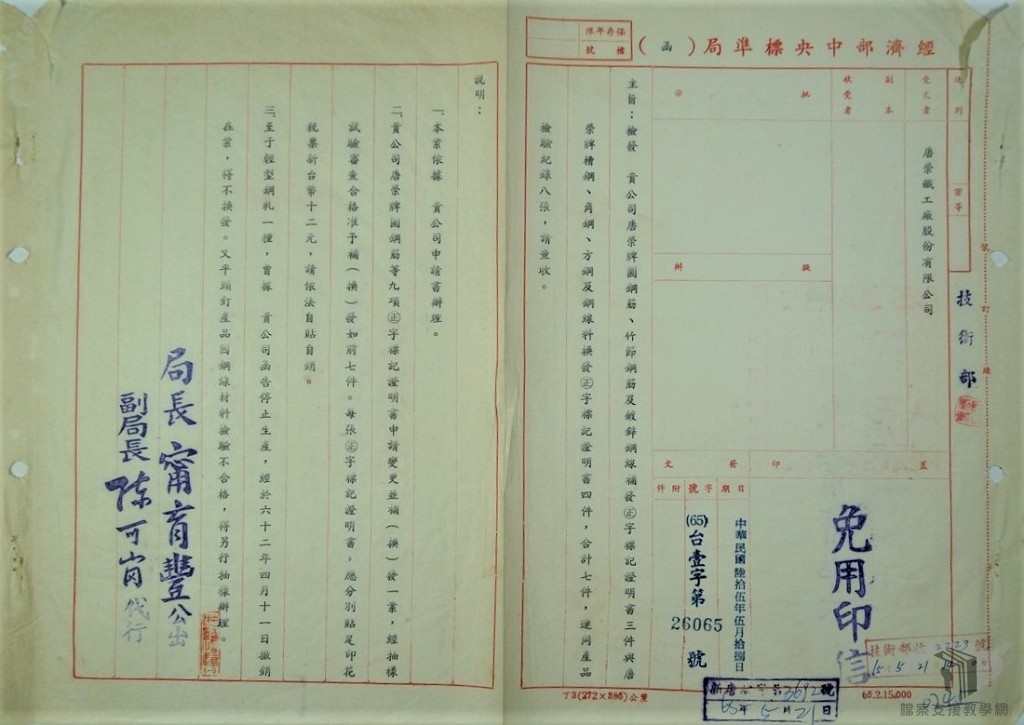 經濟部中央標準局（函）
保存年限
檔號
速別
密等
受文者
唐榮鐵工廠股份有限公司
副本
收受者
批示
擬辦
技術部
裝訂線
蓋印發文
日期
字號
附件
中華民國陸拾伍年伍月拾捌日
(65)台壹字第26065號
免用印信
主旨：檢發　貴公司唐榮牌圓鋼筋、竹節鋼筋及鍍鋅鋼線補發㊣字標記證明書三件與唐
榮牌槽鋼、角鋼、方鋼及鋼線料換發㊣字標記證明書四件，合計七件，連同產品
檢驗紀錄八張，請查收。
說明：
一、本案依據　貴公司申請書辦理。
二、貴公司唐榮牌圓鋼筋等九項㊣字標記證明書申請變更並補（換）發一案，經抽樣
試驗審查合格准予補（換）發如前七件。每張㊣字標記證明書，應分別貼足印花
稅票新台幣十二元，請依法自貼自銷。
三、至于輕型鋼軋一種，曾據　貴公司函告停止生產，經於六十二年四月十一日撤銷
在案，得不換發。又平頭釘產品因鋼線材料檢驗不合格，得另行抽樣辦理。
局長甯育豐公出
副局長陳可肖代行
技術部收2223號
65.5.21
字第3692號
65年5月21日
丁3(272×385)公釐
65.2.15,000
檔案支援教學網